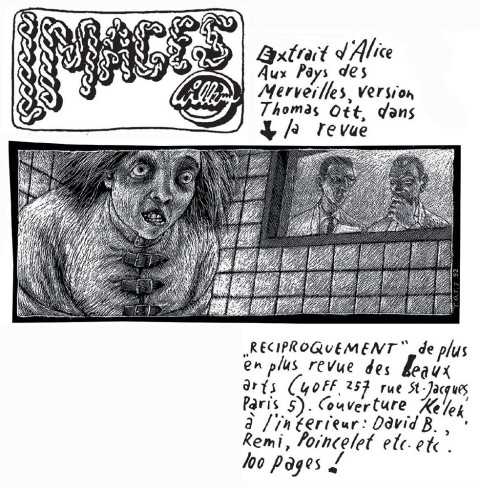 IMAGES
Willem
Extrait d'Alice
Aux Pays des
Merveilles, version
Thomas Ott, dans
la revue
T.OTT 92
„RECIPROQUEMENT" de plus
en plus revue des Beaux
arts (40FF. 257 rue St-Jacques,
Paris 5). Couverture Kelek,
à l'interieur: David B.,
Remi, Poincelet etc. etc.
100 pages!